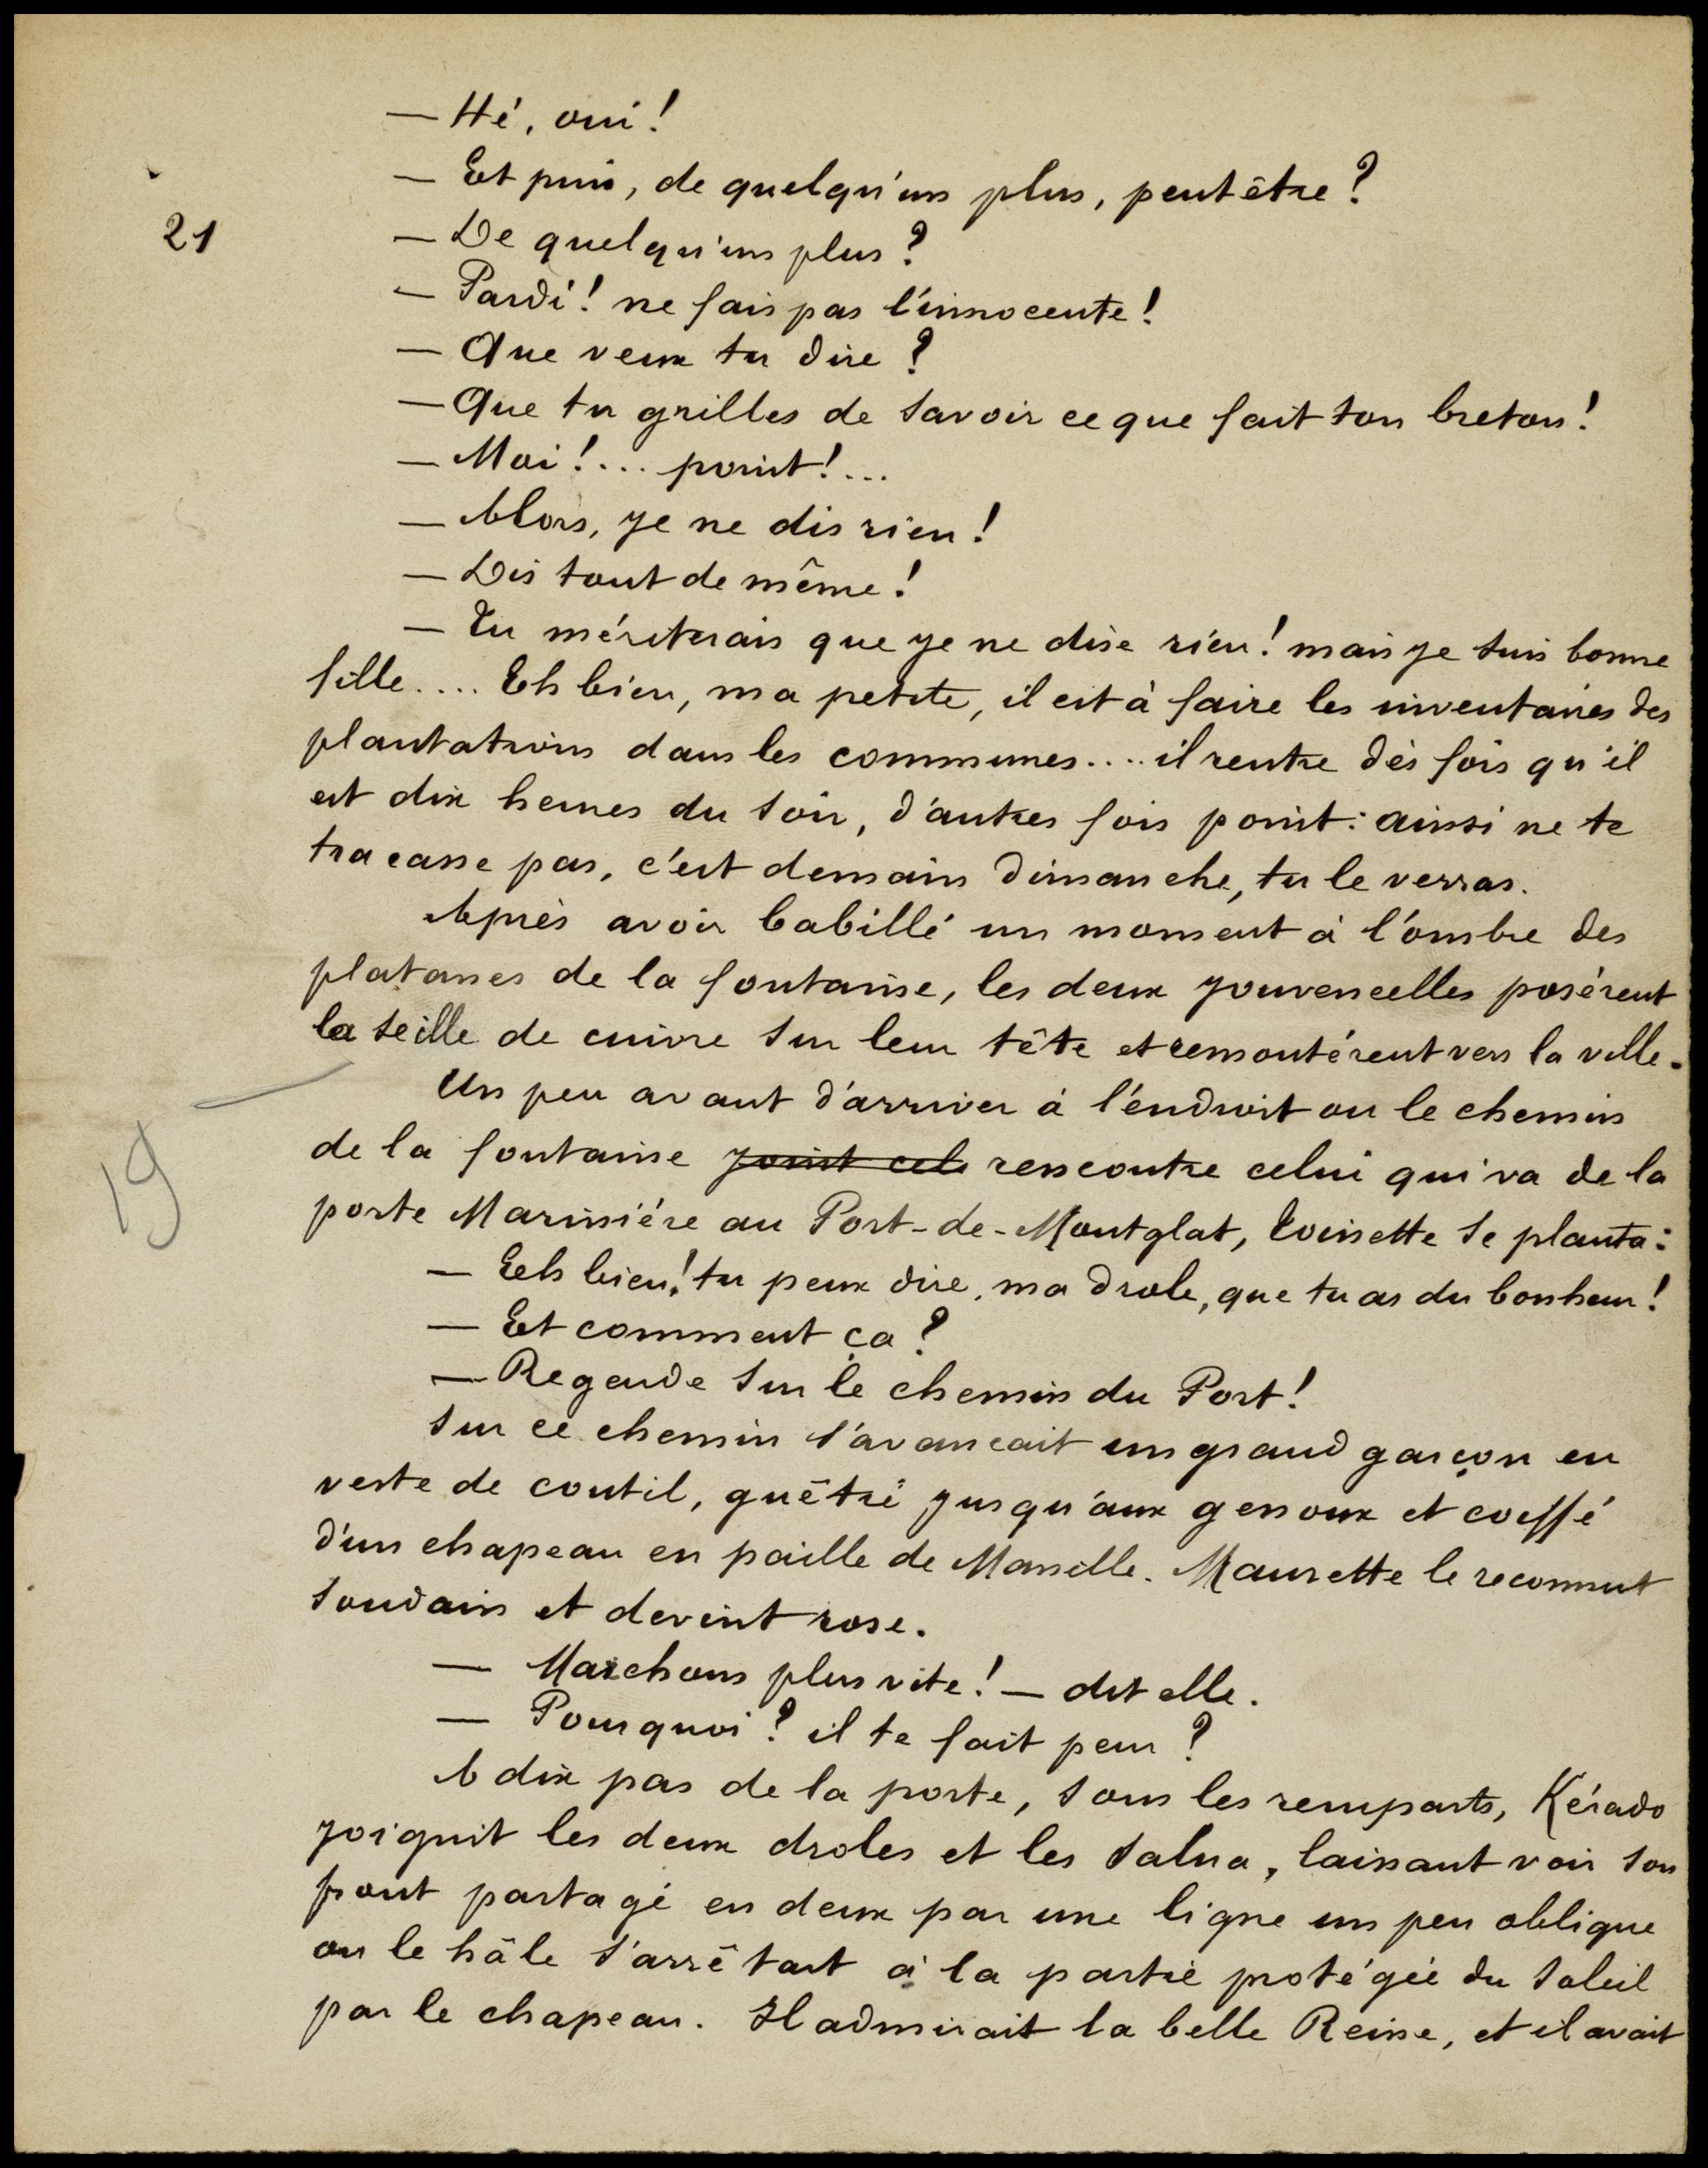 — Hé, oui!
— Et puis, de quelqu'un plus, peut être?
21
— De quelqu'un plus?
— Pardi! ne fais pas l'innocente!
— Que veux tu dire?
— Que tu grilles de savoir ce que fait ton breton!
— Moi!... point!...
— Alors, je ne dis rien!
— Dis tout de même!
— Tu mériterais que je ne dise rien! mais je suis bonne
fille.... Eh bien, ma petite, il est à faire les inventaires des
plantations dans les communes.... il rentre dès fois qu'il
est dix heures du soir, d'autres fois point: ainsi ne te
tracasse pas, c'est demain dimanche, tu le verras.
Après avoir babillé un moment à l'ombre des
platanes de la fontaine, les deux jouvencelles posèrent
la seille de cuivre sur leur tête et remontèrent vers la ville.
Un peu avant d'arriver à l'endroit ou le chemin
de la fontaine joint celi rencontre celui qui va de la
19
porte Marinière au Port-de-Montglat, Toinette se planta:
— Eh bien! tu peux dire, ma drole, que tu as du bonheur!
— Et comment ça?
— Regarde sur le chemin du Port!
Sur ce chemin s'avancait un grand garçon en
veste de coutil, guêtré jusqu'aux genoux et coiffé
d'un chapeau en paille de Manille. Maurette le reconnut
soudain et devint rose.
— Marchons plus vite! — dit elle.
— Pourquoi? il te fait peur?
A dix pas de la porte, sous les remparts, Kérado
joignit les deux droles et les salua, laissant voir son
front partagé en deux par une ligne un peu oblique
ou le hâle s'arrêtait à la partie protégée du soleil
par le chapeau. Il admirait la belle Reine, et il avait